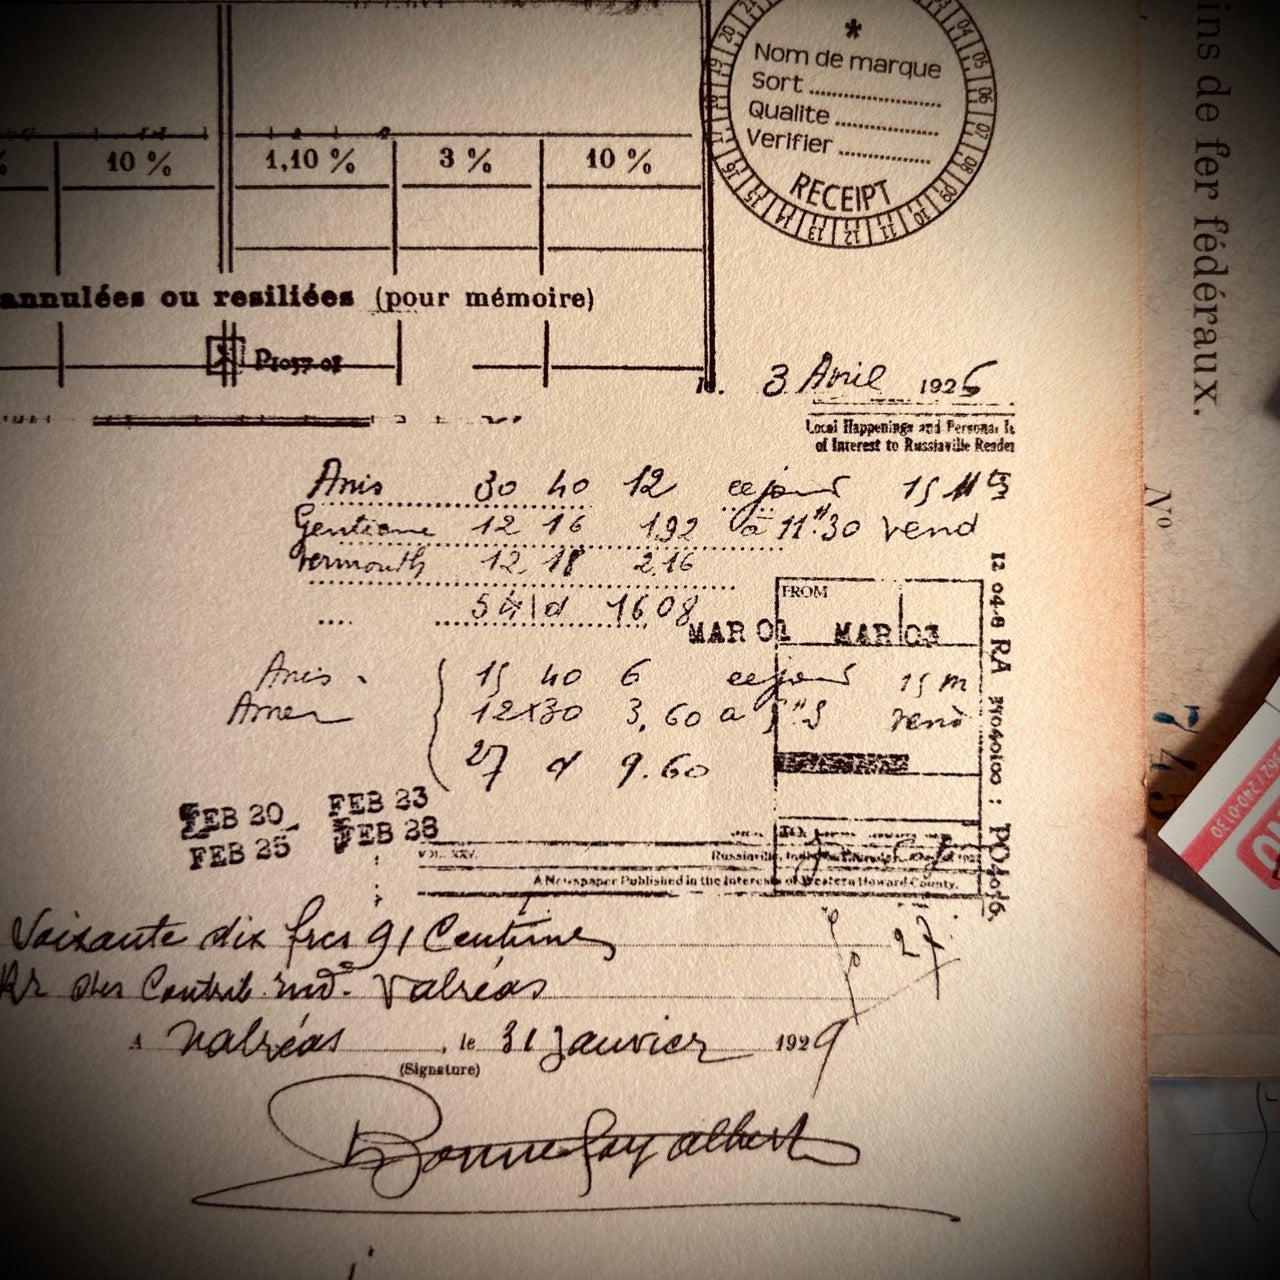 *
Nom de marque
Sort
Qualite
Verifier
RECEIPT
10 % 1,10 % 3 % 10 %
annulées ou resiliées (pour mémoire)
3 Avril 1926
Local Happenings and Personal
of Interest to Russiaville
Anis 30 40 12 ce jour 15
Gentiane 12 16 1.92 à 11H30 vend
Vermouth 12 18 2.16
54 d 16 08
FROM
MAR 01 MAR 03
Anis 15 40 6 ce jour 15 m
Amer 12 x 30 3.60 a vend
27 d 9.60
FEB 20 FEB 23
FEB 25 FEB 28
VOL. XXV. Russiaville,
A Newspaper Published in the Interests of Western Howard County.
Soixante dix frcs 91 Centimes
27
des Contrib. ind. Valréas
A Valréas, le 31 Janvier 1929
(Signature)
Bonnefoy Albert
12 04-8 RA
ins de fer fédéraux.
No
745